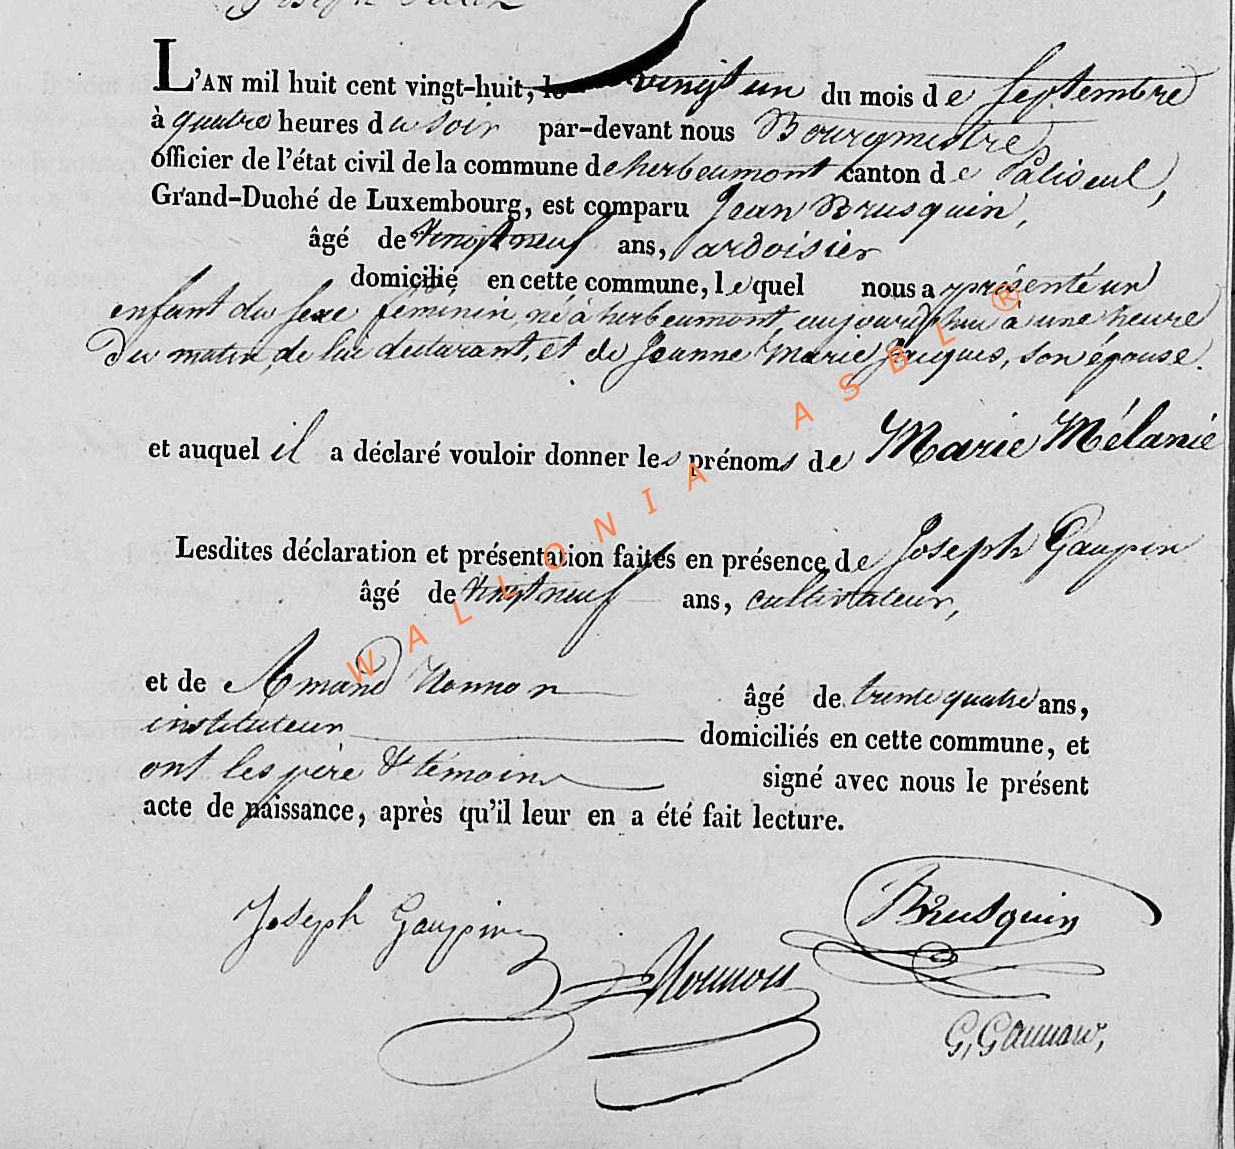 L'AN mil huit cent vingt-huit, le vingt un du mois de septembre
à quatre heures du soir par-devant nous Bourgmestre,
officier de l'état civil de la commune de herbeumont canton de Paliseul,
Grand-Duché de Luxembourg, est comparu Jean Brusquin,
âgé de vingt neuf ans, ardoisier
domicilié en cette commune, lequel nous a présenté un
enfant du sexe féminin, né à herbeumont, aujourd'hui à une heure
du matin, de lui déclarant, et de Jeanne Marie Jacques, son épouse.
et auquel il a déclaré vouloir donner les prénoms de Marie Mélanie
Lesdites déclaration et présentation faites en présence de Joseph Gaupin
âgé de vingt neuf ans, cultivateur,
et de Amand Nonnon âgé de trente quatre ans,
instituteur domiciliés en cette commune, et
ont les père & témoins signé avec nous le présent
acte de naissance, après qu'il leur en a été fait lecture.
Brusquin
Joseph Gaupin
WALLONIA ASBL ®